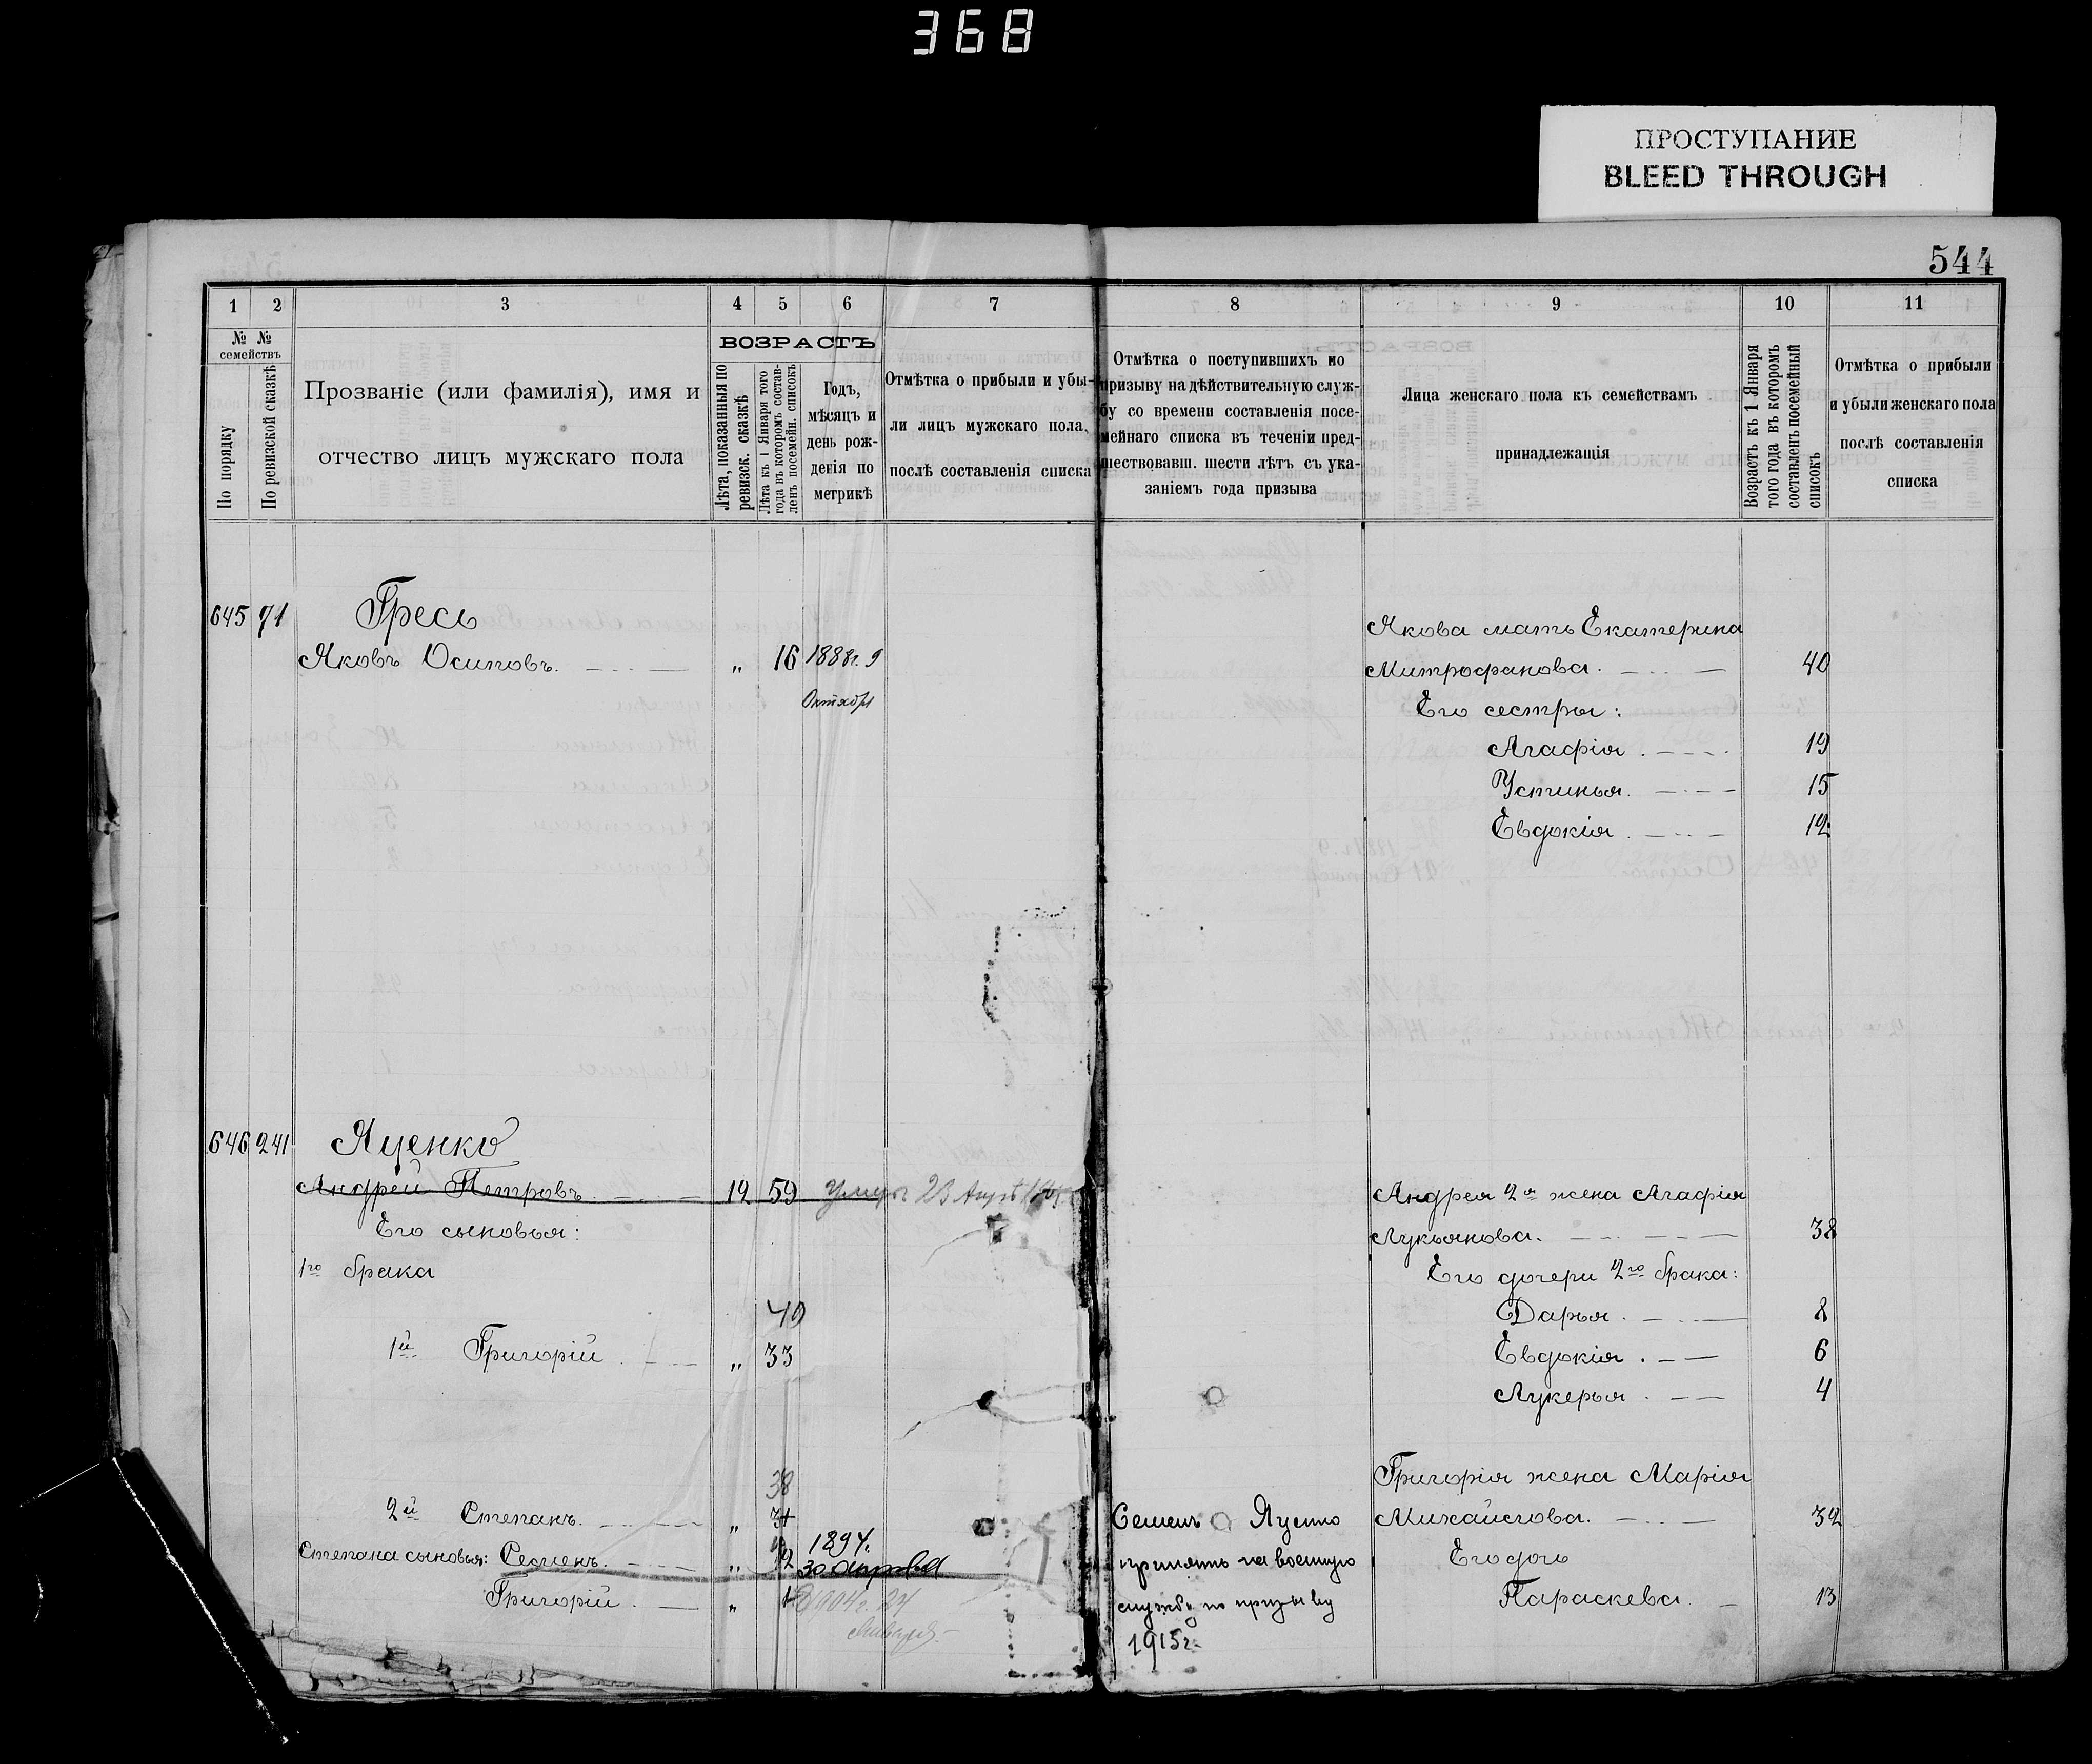 368
ПРОСТУПАНИЕ
BLEED THROUGH
544
1 2 3 4 5 6 7 8 9 10 11
№ №
семействъ
По порядку
По ревизской сказкѣ
Прозваніе (или фамилія), имя и
отчество лицъ мужскаго пола
ВОЗРАСТЪ
Лѣта, показанныя по
ревизск. сказкѣ
Лѣта къ 1 Января того
года въ которомъ состав-
ленъ посемейн. списокъ
Годъ,
мѣсяцъ и
день рож-
денія по
метрикѣ
Отмѣтка о прибыли и убы-
ли лицъ мужскаго пола,
послѣ составленія списка
Отмѣтка о поступившихъ по
призыву на дѣйствительную служ-
бу со времени составленія посе-
мейнаго списка въ теченіи пред-
шествовавш. шести лѣтъ съ ука-
заніемъ года призыва
Лица женскаго пола къ семействамъ
принадлежащія
Возрастъ къ 1 Января
того года въ которомъ
составленъ посемейный
списокъ
Отмѣтка о прибыли
и убыли женскаго пола
послѣ составленія
списка
645 71 Гресь
Яковъ Осиповъ. „ 16 1888г. 9
Октября
Якова мать Екатерина
Митрофанова. 40
Его сестры:
Агафія 19
Устинья. 15
Евдокія 12
646 241 Яценко
Андрей Петровъ 12 59 умеръ 23
Его сыновья:
1го брака
49
1й Григорій „ 33
38
2й Степанъ. „ 34
Степана сыновья: Семенъ. „ 12 1894.
30
Григорій „ 1904г. 24
Января
Семенъ Яценко
принятъ на военную
службу по призыву
1915г.
Андрея 2я жена Агафія
Лукьянова. 38
Его дочери 2го брака:
Дарья 8
Евдокія 6
Лукерья 4
Григорія жена Марія
Михайлова. 32
Его дочь
Параскева 13